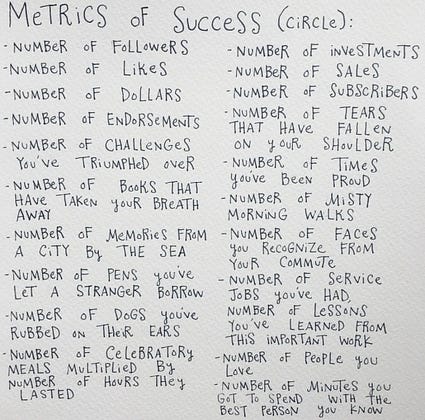 METRICS OF SUCCESS (CIRCLE):
- NUMBER OF FOLLOWERS
- NUMBER OF LIKES
- NUMBER OF DOLLARS
- NUMBER OF ENDORSEMENTS
- NUMBER OF CHALLENGES
YOU'VE TRIUMPHED OVER
- NUMBER OF BOOKS THAT
HAVE TAKEN YOUR BREATH
AWAY
- NUMBER OF MEMORIES FROM
A CITY BY THE SEA
- NUMBER OF PENS YOU'VE
LET A STRANGER BORROW
- NUMBER OF DOGS YOU'VE
RUBBED ON THEIR EARS
- NUMBER OF CELEBRATORY
MEALS MULTIPLIED BY
NUMBER OF HOURS THEY
LASTED
- NUMBER OF INVESTMENTS
- NUMBER OF SALES
- NUMBER OF SUBSCRIBERS
- NUMBER OF TEARS
THAT HAVE FALLEN
ON YOUR SHOULDER
- NUMBER OF TIMES
YOU'VE BEEN PROUD
- NUMBER OF MISTY
MORNING WALKS
- NUMBER OF FACES
YOU RECOGNIZE FROM
YOUR COMMUTE
- NUMBER OF SERVICE
JOBS YOU'VE HAD,
NUMBER OF LESSONS
YOU'VE LEARNED FROM
THIS IMPORTANT WORK
- NUMBER OF PEOPLE YOU
LOVE
- NUMBER OF MINUTES YOU
GOT TO SPEND WITH THE
BEST PERSON YOU KNOW